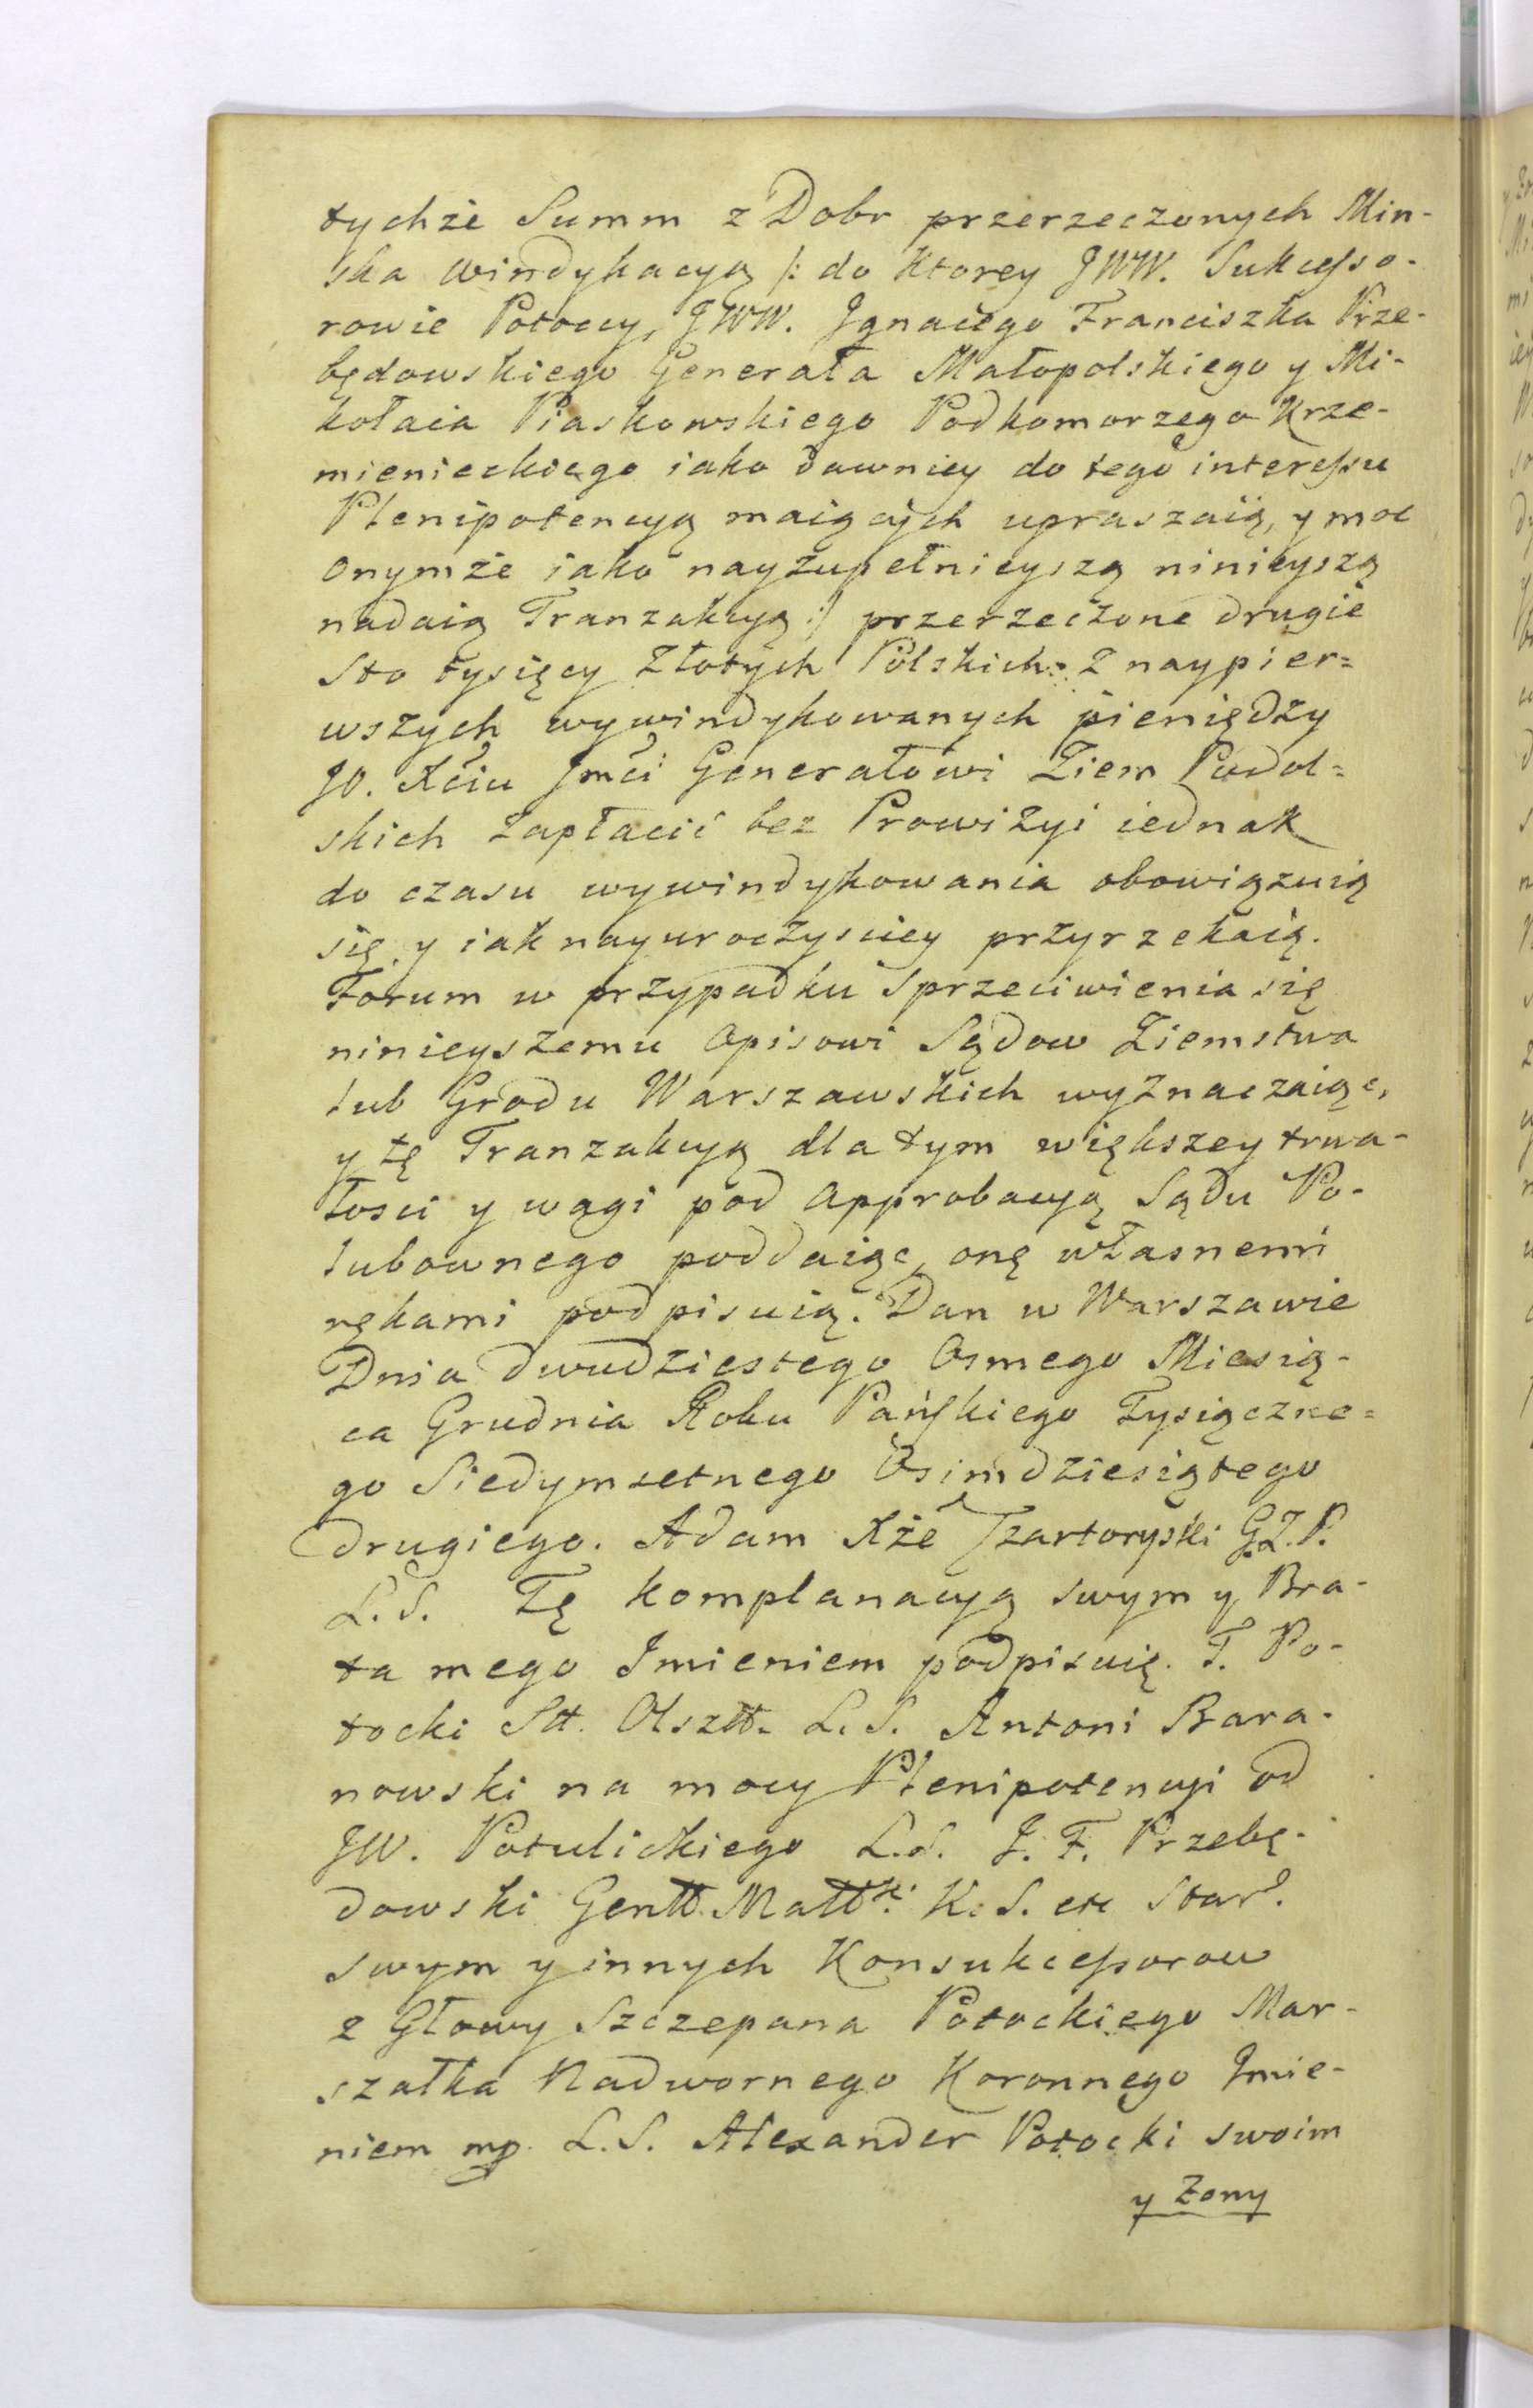 tychże Summ z Dobr przerzeczonych Min-
ska windykacyą /: do Ktorey JWW. Sukcesso-
rowie Potoccy, JWW. Jgnacego Franciszka Prze-
będowskiego Generała Małopolskiego y Mi-
kołaia Piaskowskiego Podkomorzego Krze-
mienieckiego iako dawniey do tego interessu
Plenipotencyą maiących upraszaią, y moc
onymże iako nayzupełnieyszą ninieyszą
nadaią Tranzakcyą :/ przerzeczone drugie
Sto tysięcy Złotych Polskich z naypier=
wszych wywindykowanych pieniędzy
JO. Xciu Jmći Generałowi Ziem Podol=
skich zapłacić bez Prowizyi iednak
do czasu wywindykowania obowiązuią
się, y iak nayuroczyściey przyrzekaią.
Forum w przypadku sprzeciwienia się
ninieyszemu Opisowi Sądow Ziemstwa
lub Grodu Warszawskich wyznaczaiąc,
y tę Tranzakcyą dla tym większey trwa-
łosci y wagi pod Approbacyą Sądu Po-
lubownego poddaiąc, onę własnemi
rękami podpisuią. Dan w Warszawie
Dnia dwudziestego Osmego Miesią-
ca Grudnia Roku Pańskiego Tysiączne=
go Siedymsetnego Osimdziesiątego
drugiego. Adam Xże Czartoryski G.Z.P.
L.S. Tę komplanacyą swym y Bra-
ta mego Jmieniem podpisuię. T. Po-
tocki Stt. Olsztt. L.S. Antoni Bara-
nowski na mocy Plenipotencyi od
JW. Potulickiego L.S. J. F. Przebę-
dowski Gentt. Małłki K. S. etc Star.
swym y innych Konsukcessorow
z Głowy Szczepana Potockiego Mar-
szałka Nadwornego Koronnego Jmie-
niem mp. L.S. Alexander Potocki swoim
y Zony